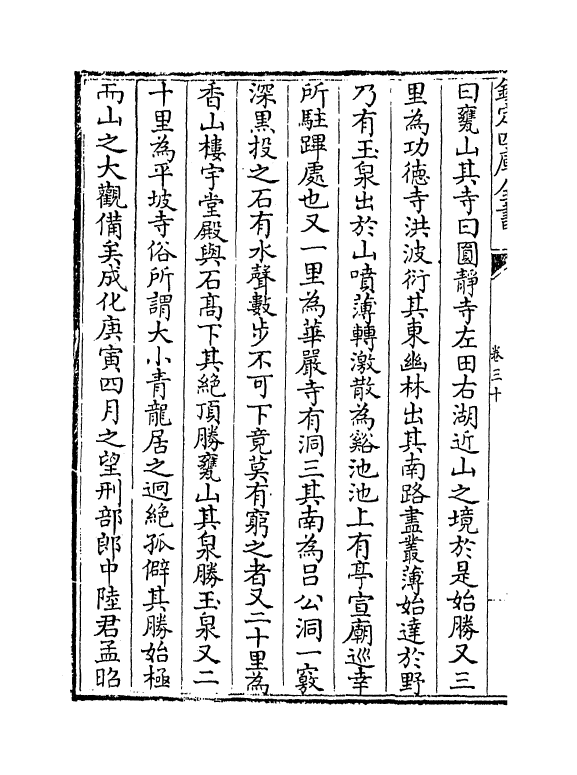 欽定四庫全書
卷三十
曰甕山其寺曰圓靜寺左田右湖近山之境於是始勝又三
里為功徳寺洪波衍其東幽林出其南路盡叢薄始達於野
乃有玉泉出於山噴薄轉激散為谿池池上有亭宣廟廵幸
所駐蹕處也又一里為華嚴寺有洞三其南為吕公洞一竅
深黑投之石有水聲數步不可下竟莫有窮之者又二十里為
香山樓宇堂殿與石髙下其絶頂勝甕山其泉勝玉泉又二
十里為平坡寺俗所謂大小青龍居之迥絶孤僻其勝始極
而山之大觀備矣成化庚寅四月之望刑部郎中陸君孟昭